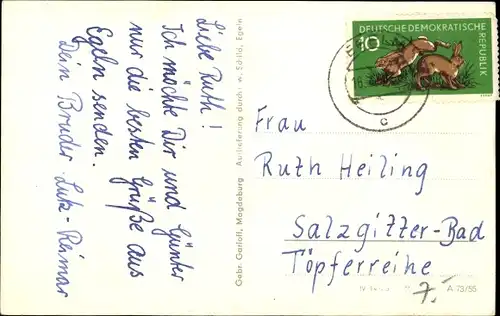 Liebe Ruth!
Ich möchte Dir und Günter
nur die besten Grüße aus
Egeln senden.
Dein Bruder Lutz-Reimar
Gebr. Garloff, Magdeburg Auslieferung durch: W. Schild, Egeln
DEUTSCHE DEMOKRATISCHE
REPUBLIK
10
c
Frau
Ruth Heiling
Salzgitter-Bad
Töpferreihe
A 73/55
7.-